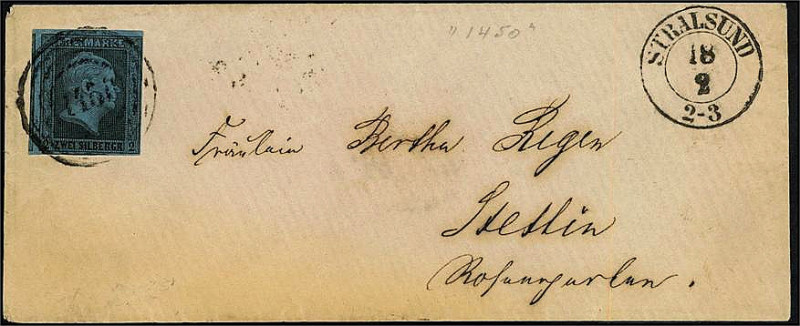 FREIMARKE
ZWEI SILBERGR.
2
"1450"
STRALSUND
18
2
2-3
Fräulein Bertha Regen
Stettin
Rosengarten.